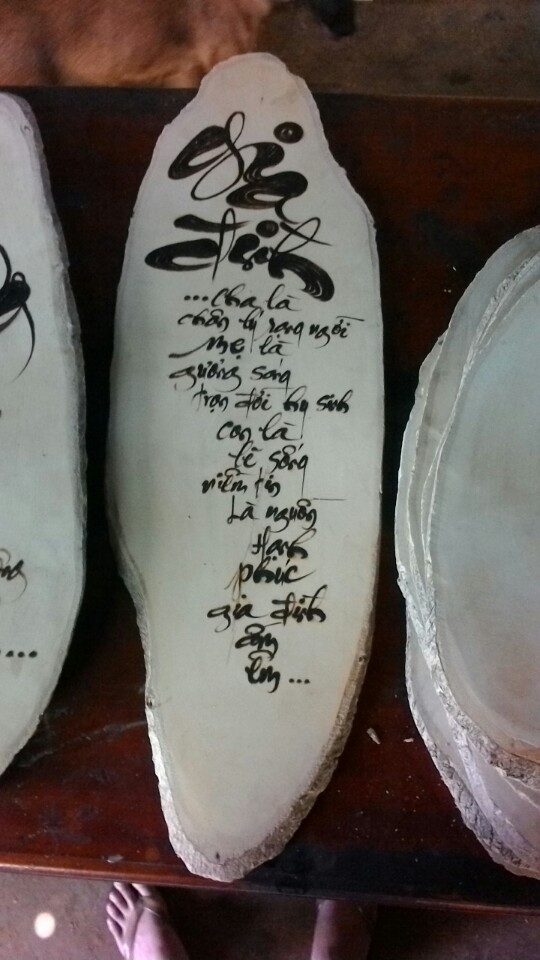 Gia
đình
...cha là
chân lý rạng ngời
Mẹ là
gương sáng
trọn đời hy sinh
con là
lẽ sống
niềm tin
Là nguồn
Hạnh
phúc
gia đình
ấm
êm...